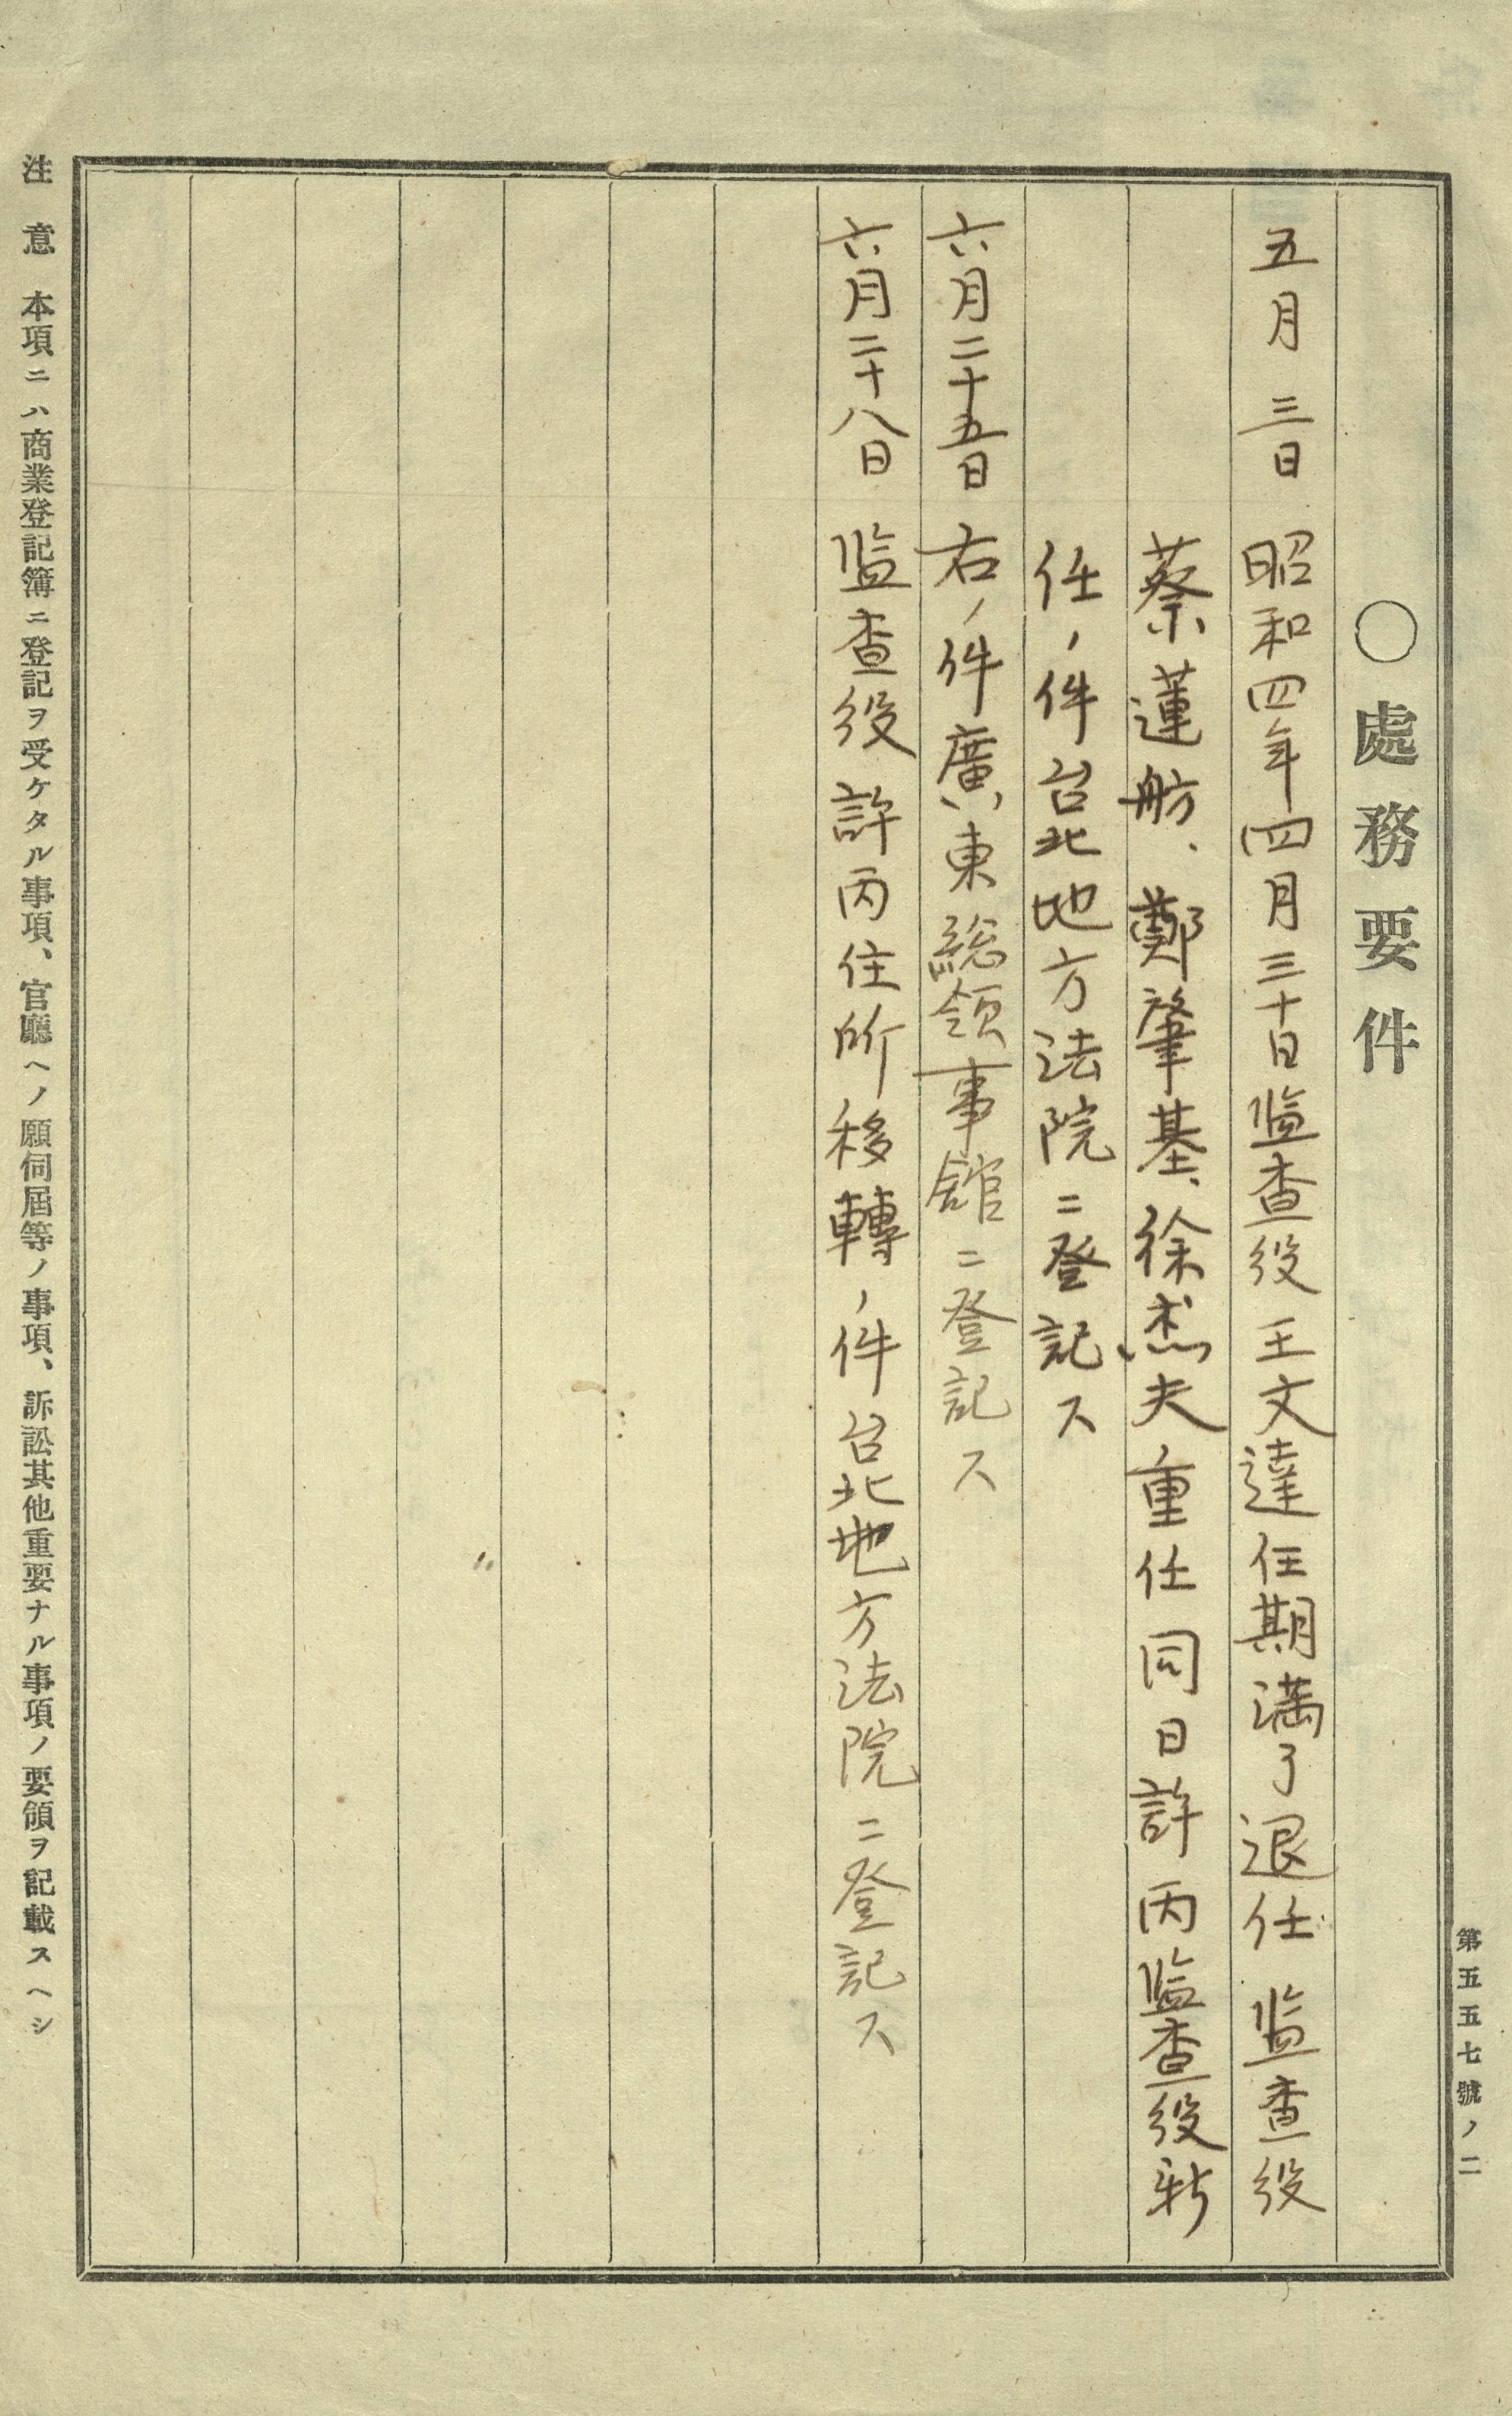 第五五七號ノ二
○處務要件
五月三日 昭和四年四月三十日监查役王文達任期満了退任监查役
蔡蓮舫、鄭肇基、徐杰夫重任同日許丙监查役新
任ノ件台北地方法院ニ登記ス
六月二十五日 右ノ件廣東総領事館ニ登記ス
六月二十八日 监查役許丙住所移轉ノ件台北地方法院ニ登記ス
注意 本項ニハ商業登記簿ニ登記ヲ受ケタル事項、官廳ヘノ願伺屆等ノ事項、訴訟其他重要ナル事項ノ要領ヲ記載スヘシ